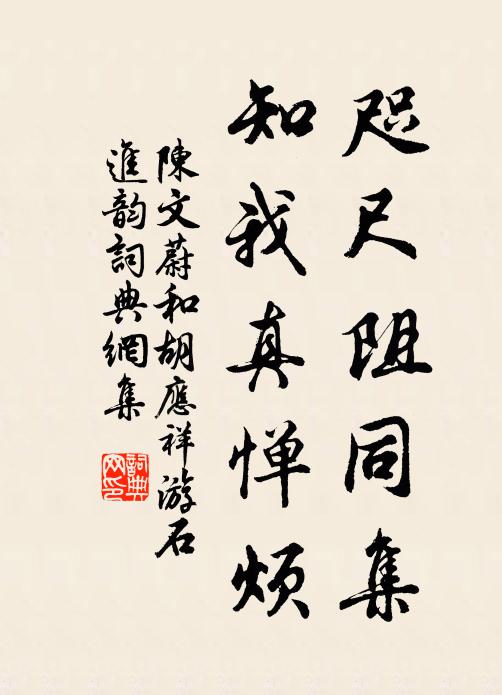 咫尺阻同集
知我真惮烦
陳文蔚和胡應祥游石
進韵詞典網集
詞典网印